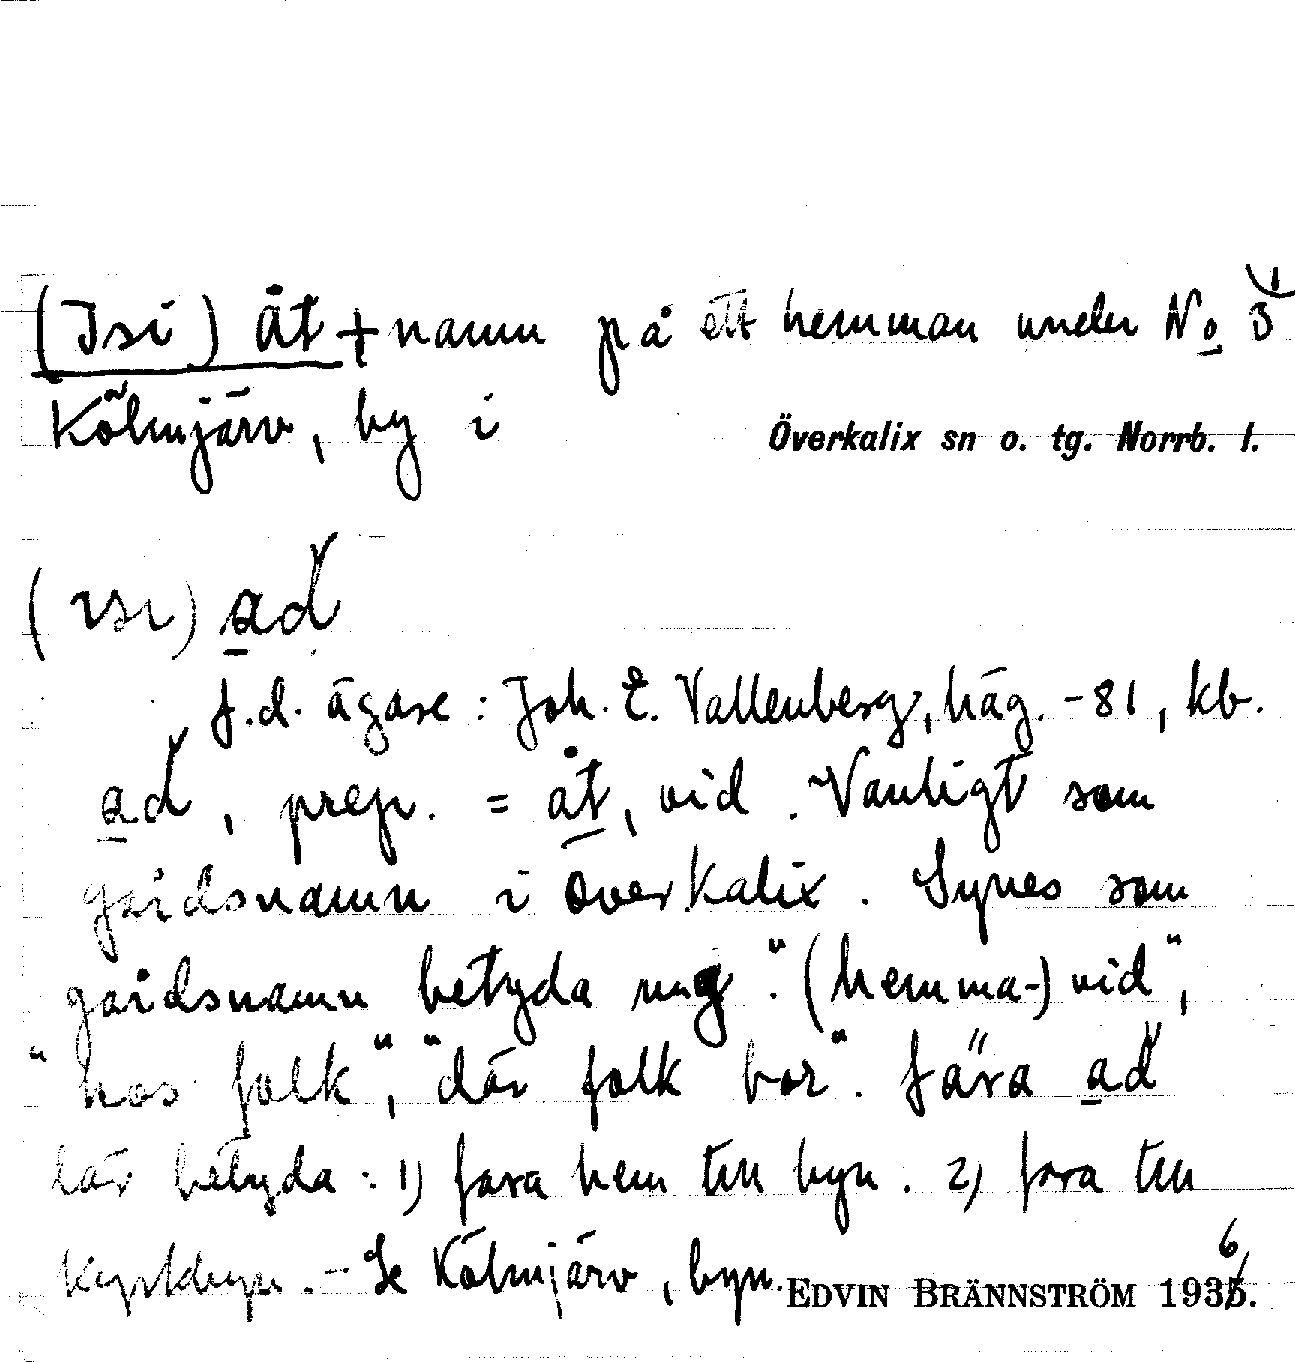 (Isi) åt + namn på ett hemman under No 3 1
Kölmjärv, by i Överkalix sn o. tg. Norrb. l.
(ɪsɪ) ad
f.d. ägare: Joh. E. Vallenberg, häg. -81, kb.
ad, prep. = åt, vid. Vanligt som
gårdsnamn i Överkalix. Synes som
gårdsnamn betyda ung. "(hemma-) vid",
"hos folk", "där folk bor". fära ad
lär betyda: 1) fara hem till byn. 2) fara till
kyrkbyn. - Se Kölmjärv, byn.
EDVIN BRÄNNSTRÖM 1936.